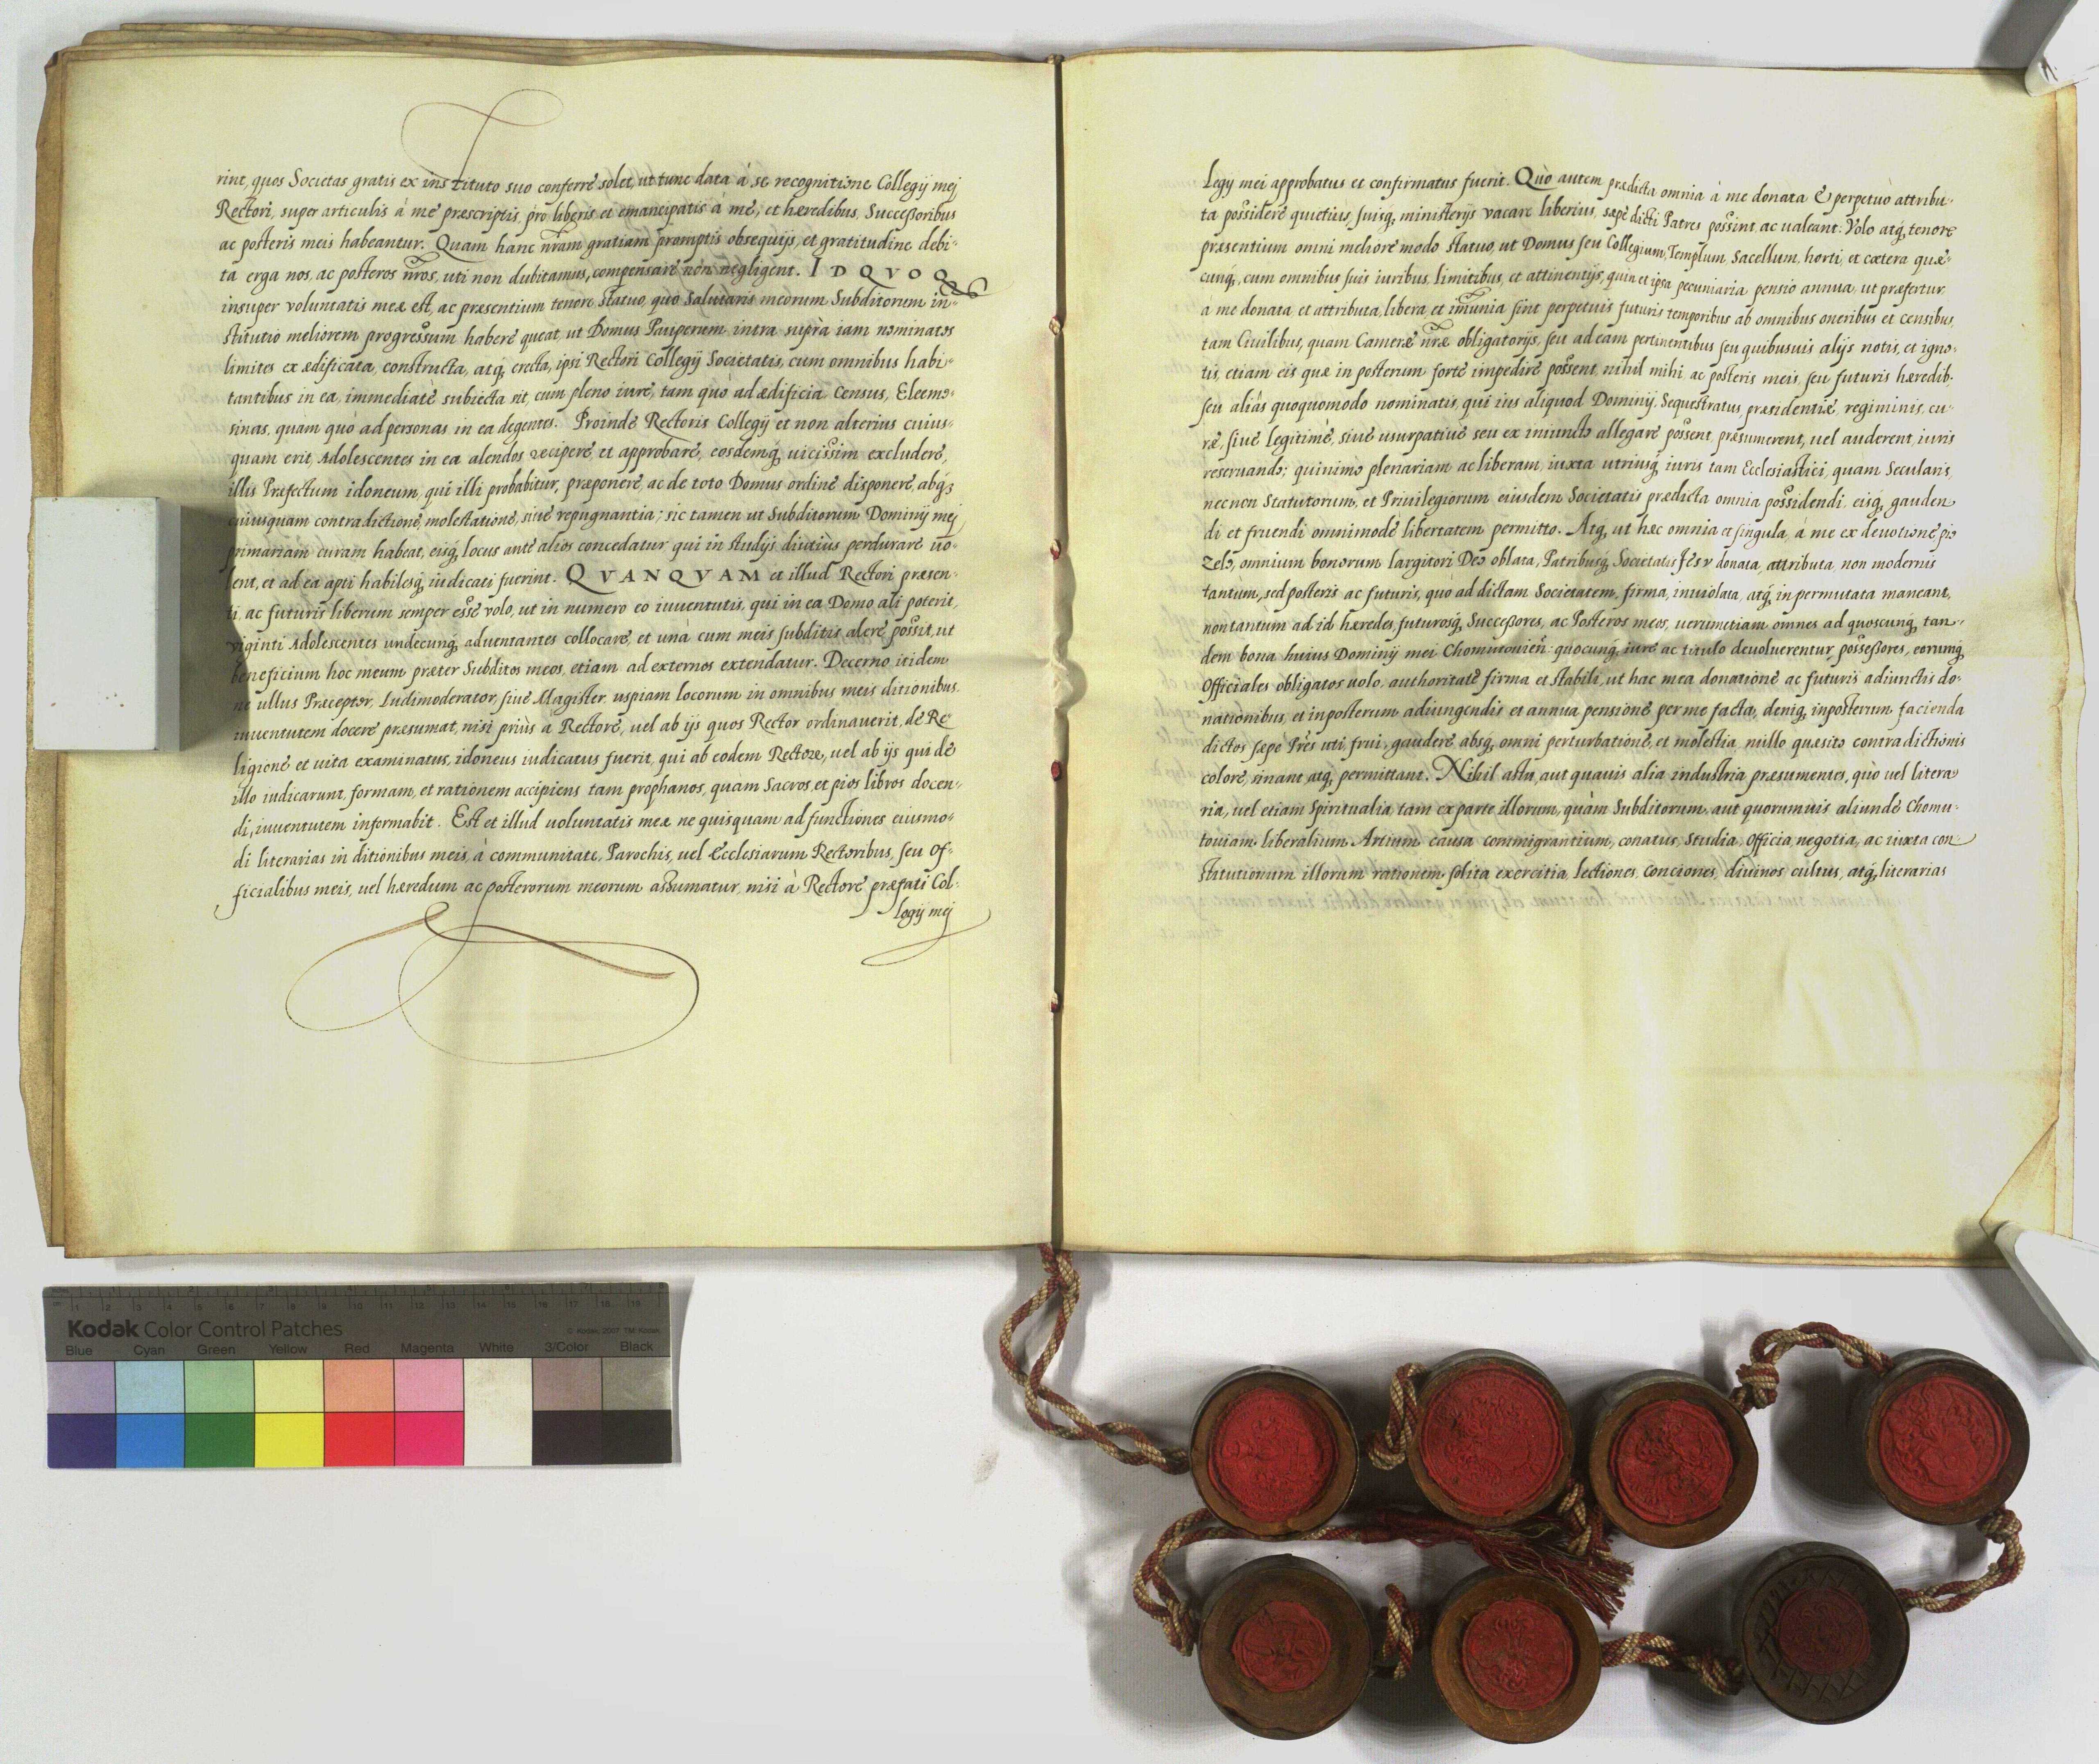 rint, quos Societas gratis ex instituto suo conferre solet, ut tunc data à se recognitione Collegij mej
Rectori, super articulis à me præscriptis, pro liberis et emancipatis à me, et hæredibus, Successoribus
ac posteris meis habeantur. Quam hanc nr̃am gratiam promptis obsequijs, et gratitudine debi-
ta erga nos, ac posteros nr̃os, uti non dubitamus, compensare non negligent. IDQVOQ
insuper voluntatis meæ est, ac præsentium tenore statuo, quò Salutaris meorum Subditorum in-
stitutio meliorem progressum habere queat, ut Domus Pauperum intra suprà iam nominatos
limites ex ædificata, constructa, atq, erecta, ipsi Rectori Collegij Societatis, cum omnibus habi-
tantibus in ea, immediatè subiecta sit, cum pleno iure, tam quò ad ædificia Census, Eleemo-
sinas, quam quò ad personas in ea degentes. Proinde Rectoris Collegij et non alterius cuius-
quam erit, Adolescentes in ea alendos recipere et approbare, eosdemq, uicissim excludere,
illis Præfectum idoneum, qui illi probabitur, præponere, ac de toto Domus ordine disponere, absq;
cuiusquam contradictione, molestatione, siue repugnantia; sic tamen ut Subditorum Dominij mej
primariam curam habeat, eisq, locus ante alios concedatur qui in studijs diutiùs perdurare uo-
lent, et ad ea apti habilesq, iudicati fuerint. QVANQVAM et illud Rectori præsen-
ti, ac futuris liberum semper esse volo, ut in numero eo iuuentutis, qui in ea Domo ali poterit,
viginti Adolescentes undecunq, aduentantes collocare, et unà cum meis subditis alere possit, ut
beneficium hoc meum præter Subditos meos, etiam ad externos extendatur. Decerno itidem
ne ullus Præceptor, Ludimoderator, siue Magister uspiam locorum in omnibus meis ditionibus.
iuuentutem docere præsumat, nisi priùs a Rectore, uel ab ijs quos Rector ordinauerit, de Re-
ligione et uita examinatus, idoneus iudicatus fuerit, qui ab eodem Rectore, uel ab ijs qui de
illo iudicarunt, formam, et rationem accipiens tam prophanos, quam Sacros, et pios libros docen-
di, iuuentutem informabit. Est et illud uoluntatis meæ ne quisquam ad functiones eiusmo-
di literarias in ditionibus meis, à communitate, Parochis, uel Ecclesiarum Rectoribus, seu of-
ficialibus meis, uel hæredum ac posterorum meorum assumatur, nisi à Rectore præfati Col-
legij mej
Legij mei approbatus et confirmatus fuerit. Quò autem prædicta omnia à me donata & perpetuò attribu-
ta possidere quietiùs, suisq, ministerijs vacare liberius, sæpè dicti Patres possint, ac ualeant: Volo atq, tenore
præsentium omni meliore modo statuo, ut Domus seu Collegium, Templum, Sacellum, horti, et cætera quæ-
cunq, cum omnibus suis iuribus, limitibus, et attinentijs, quin et ipsa pecuniaria pensio annua, ut præfertur
à me donata et attributa, libera, et im̃unia sint perpetuis futuris temporibus ab omnibus oneribus et censibus,
tam Ciuilibus, quam Cameræ nr̃æ obligatorijs, seu ad eam pertinentibus seu quibusuis alijs notis, et igno-
tis, etiam eis quæ in posterum forte impedire possent, nihil mihi ac posteris meis, seu futuris hæredib.
seu aliàs quoquomodo nominatis, qui ius aliquod Dominij, Sequestratus, præsidentiæ, regiminis, cu-
ræ, siue legitimè, siuè usurpatiuè seu ex iniuncto allegare possent, præsumerent, uel auderent, iuris
reseruando; quinimo plenariam ac liberam, iuxta utriusq, iuris tam Ecclesiastici, quam Secularis,
necnon Statutorum, et Priuilegiorum eiusdem Societatis prædicta omnia possidendi, eisq, gauden
di et fruendi omnimodè libertatem permitto. Atq, ut hæc omnia et singula, à me ex deuotione pio
Zelo, omnium bonorum largitori Deo oblata, Patribusq, Societatis Jesv donata, attributa, non modernis
tantùm, sed posteris ac futuris, quò ad dictam Societatem, firma, inuiolata, atq, in permutata maneant,
non tantùm ad id hæredes, futurosq, Successores, ac Posteros meos, uerumetiam omnes ad quoscunq, tan-
dem bona huius Dominij mei Chomutouien̄: quocunq, iure ac titulo deuoluerentur, possessores, eorumq,
Officiales obligatos uolo, authoritate firma et stabili, ut hac mea donatione ac futuris adiunctis do-
nationibus, et inposterum adiungendis et annua pensione per me facta, deniq, inposterum facienda
dictos sæpe Pr̃es uti, frui, gaudere absq, omni perturbatione, et molestia, nullo quæsito contradictionis
colore, sinant, atq, permittant. Nihil astu, aut quauis alia industria præsumentes, quò uel litera
ria, uel etiam Spiritualia, tam ex parte illorum, quàm Subditorum, aut quorumuis aliunde Chomu-
touiam liberalium Artium causa commigrantium, conatus, Studia, Officia, negotia, ac iuxta con
stitutionum illorum rationem solita exercitia, lectiones, conciones, diuinos cultus, atq, literarias
Kodak Color Control Patches
© Kodak, 2007 TM Kodak
Blue Cyan Green Yellow Red Magenta White 3/Color Black